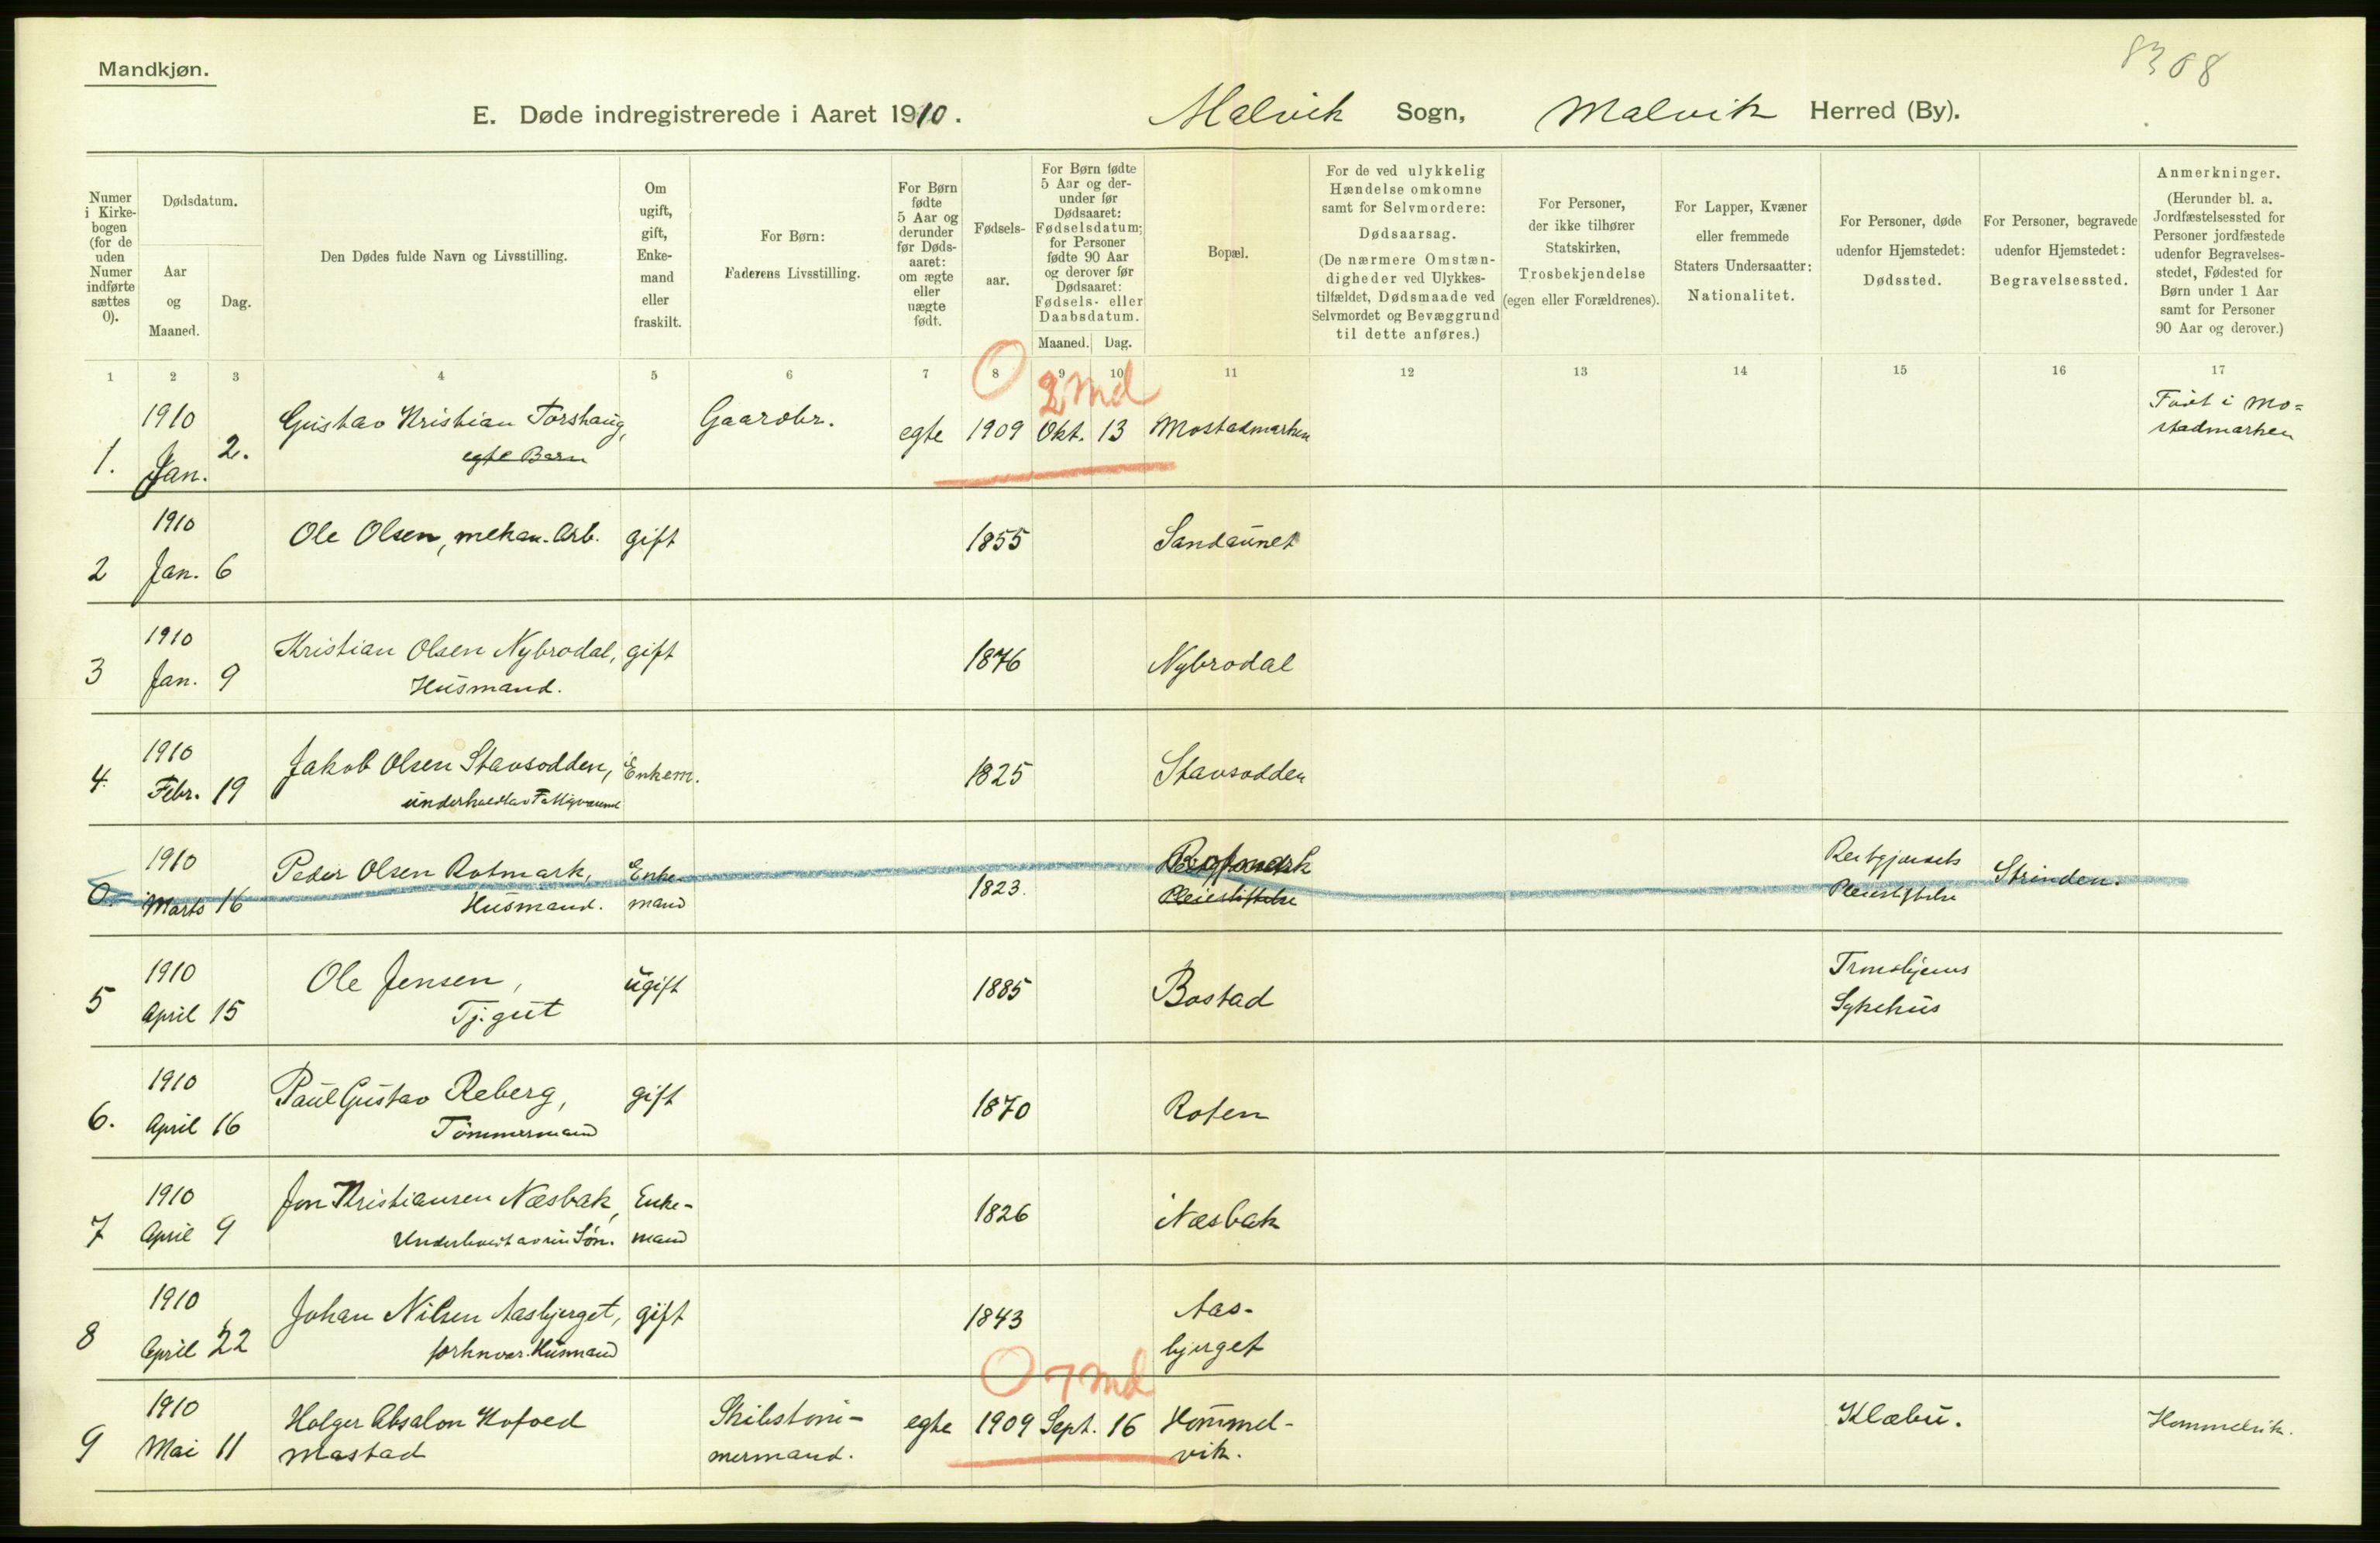 8308
Mandkjøn.
E. Døde indregistrerede i Aaret 1910. Malvik Sogn, Malvik Herred (By).
Numer i Kirkebogen (for de uden Numer indførte sættes 0).
Dødsdatum.
Aar og Maaned.
Dag.
Den Dødes fulde Navn og Livsstilling.
Om ugift, gift, Enkemand eller fraskilt.
For Børn: Faderens Livsstilling.
For Børn fødte 5 Aar og derunder før Dødsaaret: om ægte eller uægte født.
Fødselsaar.
For Børn fødte 5 Aar og derunder før Dødsaaret: Fødselsdatum; for Personer fødte 90 Aar og derover før Dødsaaret: Fødsels- eller Daabsdatum.
Maaned. Dag.
Bopæl.
For de ved ulykkelig Hændelse omkomne samt for Selvmordere: Dødsaarsag. (De nærmere Omstændigheder ved Ulykkestilfældet, Dødsmaade ved Selvmordet og Bevæggrund til dette anføres.)
For Personer, der ikke tilhører Statskirken, Trosbekjendelse (egen eller Forældrenes).
For Lapper, Kvæner eller fremmede Staters Undersaatter: Nationalitet.
For Personer, døde udenfor Hjemstedet: Dødssted.
For Personer, begravede udenfor Hjemstedet: Begravelsessted.
Anmerkninger. (Herunder bl. a. Jordfæstelsessted for Personer jordfæstede udenfor Begravelsesstedet, Fødested for Børn under 1 Aar samt for Personer 90 Aar og derover.)
1 2 3 4 5 6 7 8 9 10 11 12 13 14 15 16 17
0 2 Md
1. 1910 Jan. 2. Gustav Kristian Torshaug, egte Barn Gaardbr. egte 1909 Okt. 13 Mostadmarken Født i Mostadmarken
2 1910 Jan. 6 Ole Olsen, mekan. Arb. gift 1855 Sandaunet
3 1910 Jan. 9 Kristian Olsen Nybrodal, Husmand. gift 1876 Nybrodal
4. 1910 Febr. 19 Jakob Olsen Stavsodden, underholdt av Fattigvæsenet Enkem. 1825 Stavsodden
0. 1910 Marts 16 Peder Olsen Rotmark, Husmand. Enkemand 1823. Rotmark Pleiestiftelse Reitgjerdets Pleiestiftelse Strinden.
5 1910 April 15 Ole Jensen, Tj.gut ugift 1885 Bostad Trondhjems Sykehus
6. 1910 April 16 Paul Gustav Reberg, Tømmermand gift 1870 Roten
7 1910 April 9 Jon Kristiansen Næsbak, Underholdt av sin Søn. Enkemand 1826 Næsbak
8 1910 April 22 Johan Nilsen Aasbjerget, forhnvær. Husmand gift 1843 Aasbjerget
0 7 Md
9 1910 Mai 11 Holger Absalon Hofoed Mostad Skibstømmermand. egte 1909 Sept. 16 Hommelvik. Klæbu. Hommelvik.